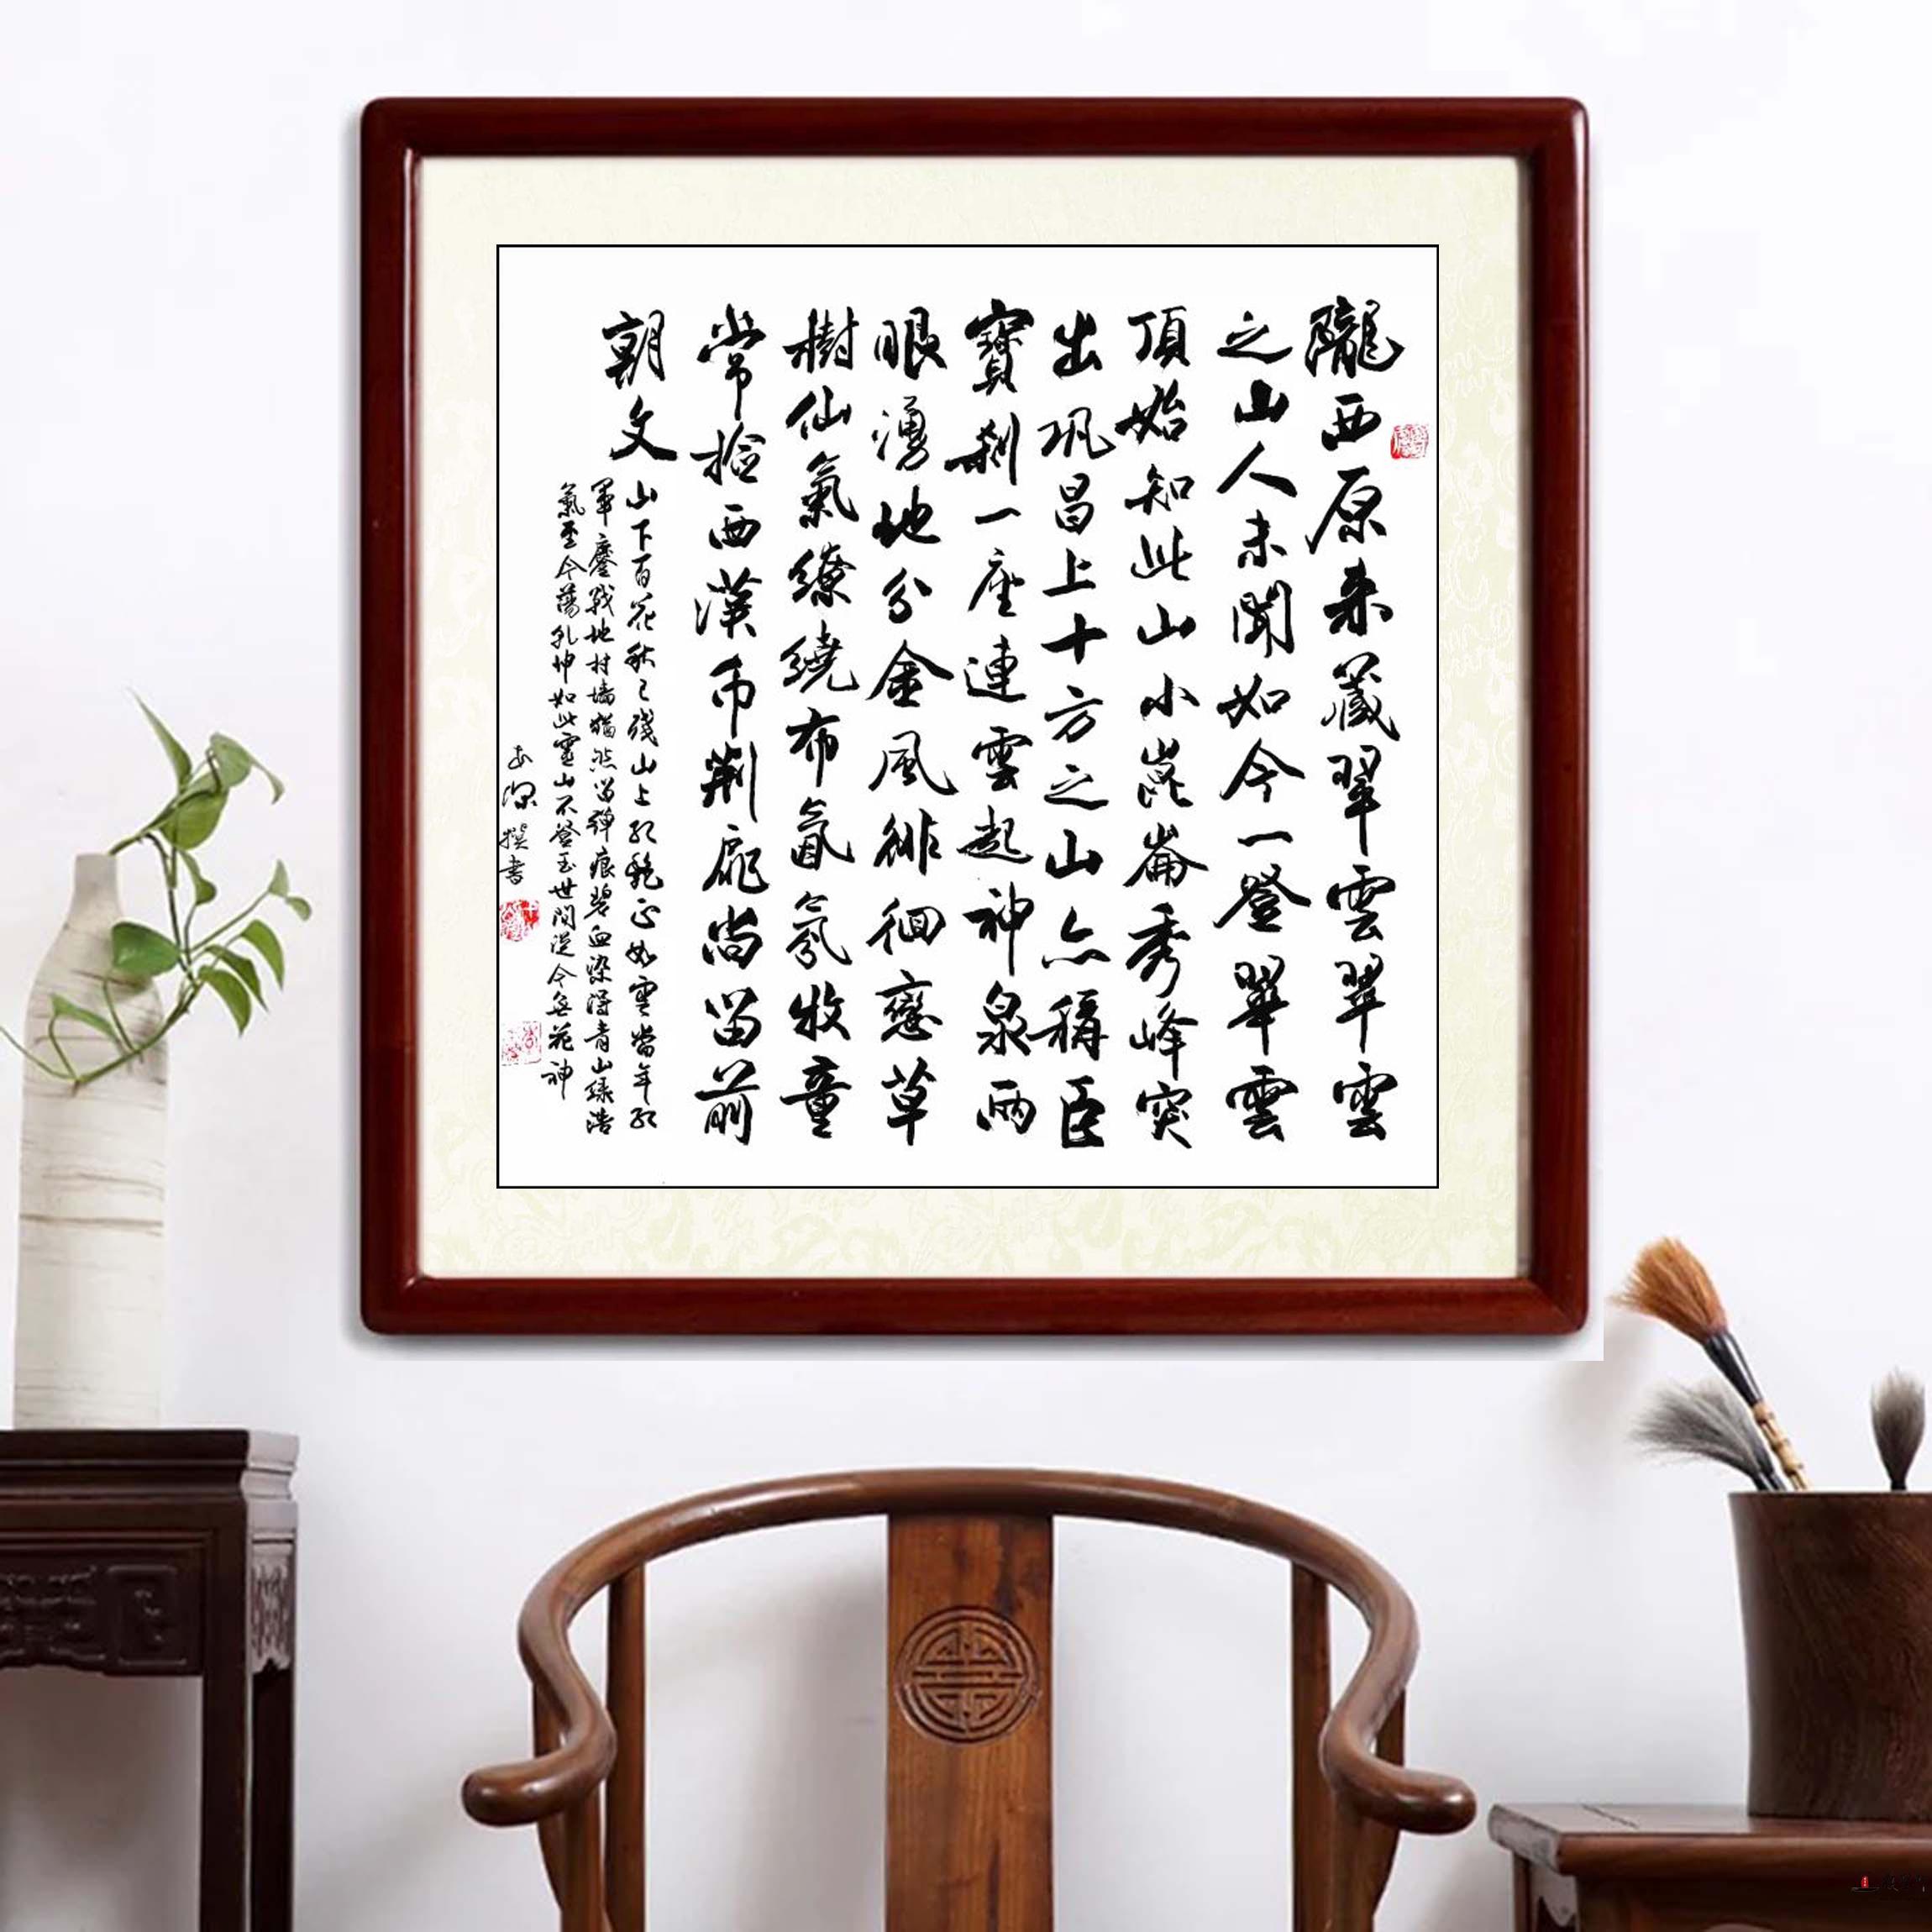 隴西原来藏翠雲翠雲
之山人未聞如今一登翠雲
頂始知此山小崑崙秀峰突
出巩昌上十方之山亦稱臣
寶刹一座連雲起神泉两
眼湧地分金風徘徊戀草
樹仙氣繚繞布氤氛牧童
常捡西漢币荆扉尚留前
朝文
山下百花秋已残山上红艳正如雲當年红
軍鏖战地村墙猶然留弹痕碧血染得青山緑浩
氣至今蕩乾坤如此靈山不登玉世间從今無花神
撰書